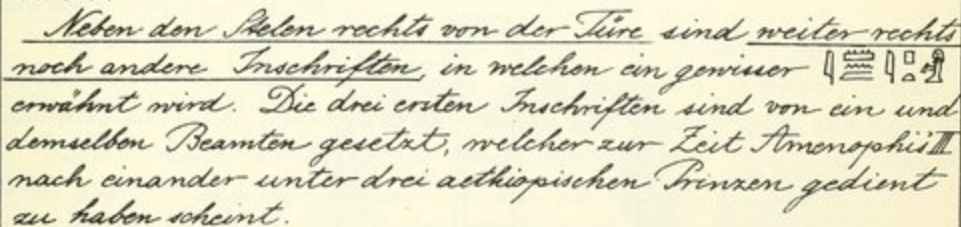 Neben den Stelen rechts von der Türe sind weiter rechts
noch andere Inschriften, in welchen ein gewisser
erwähnt wird. Die drei ersten Inschriften sind von ein und
demselben Beamten gesetzt, welcher zur Zeit Amenophis' III
nach einander unter drei aethiopischen Prinzen gedient
zu haben scheint.